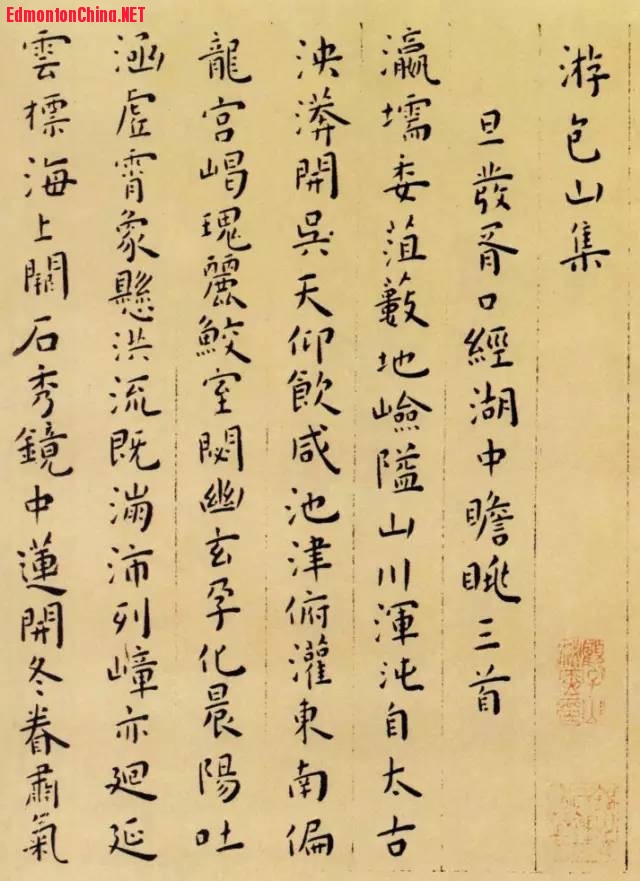 EdmontonChina.NET
游包山集
旦發胥口經湖中瞻眺三首
瀛壖委菹藪地嶮隘山川渾沌自太古
泱漭開吳天仰飲咸池津俯灌東南偏
龍宮嵑瑰麗鮫室閟幽玄孕化晨陽吐
涵虛霄象懸洪流既滿沛列嶂亦廻延
雲標海上闕石秀鏡中蓮開冬眷肅氣